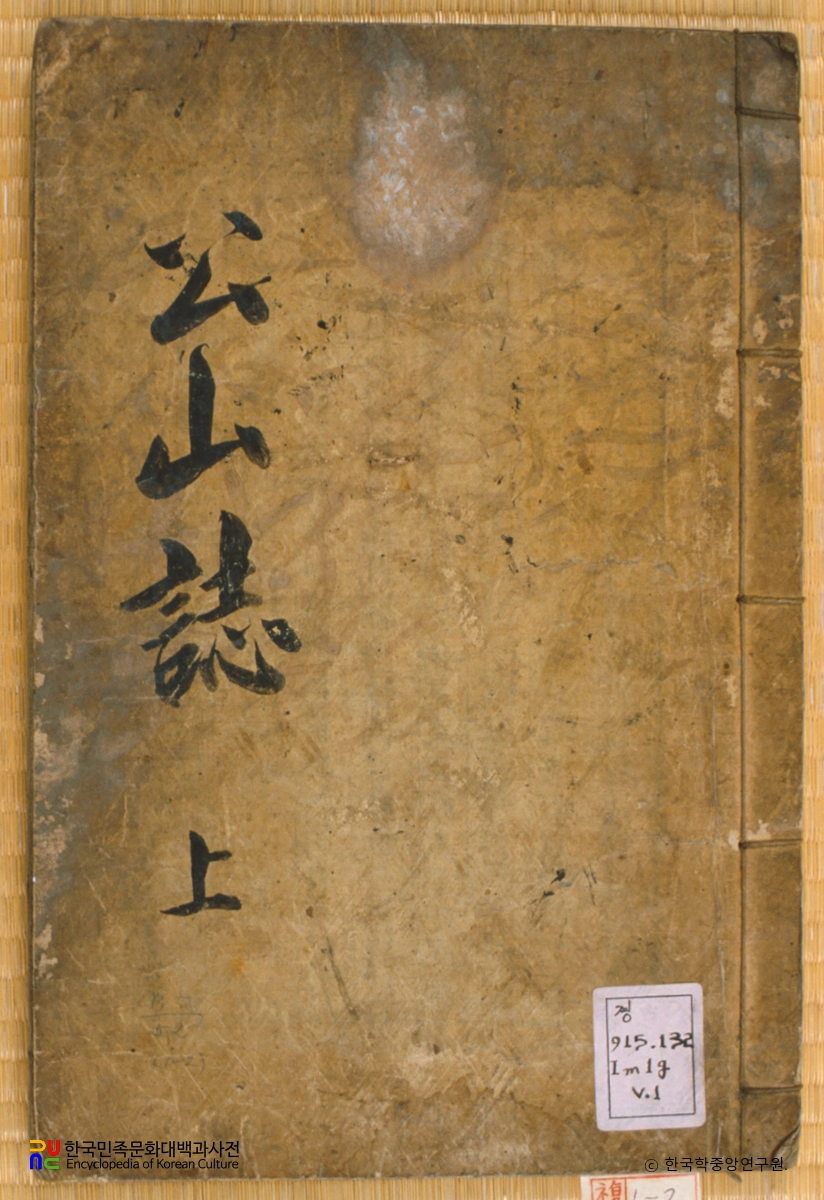 公山誌
上
정
915.132
Im1g
V.1
한국민족문화대백과사전
Encyclopedia of Korean Culture
© 한국학중앙연구원.